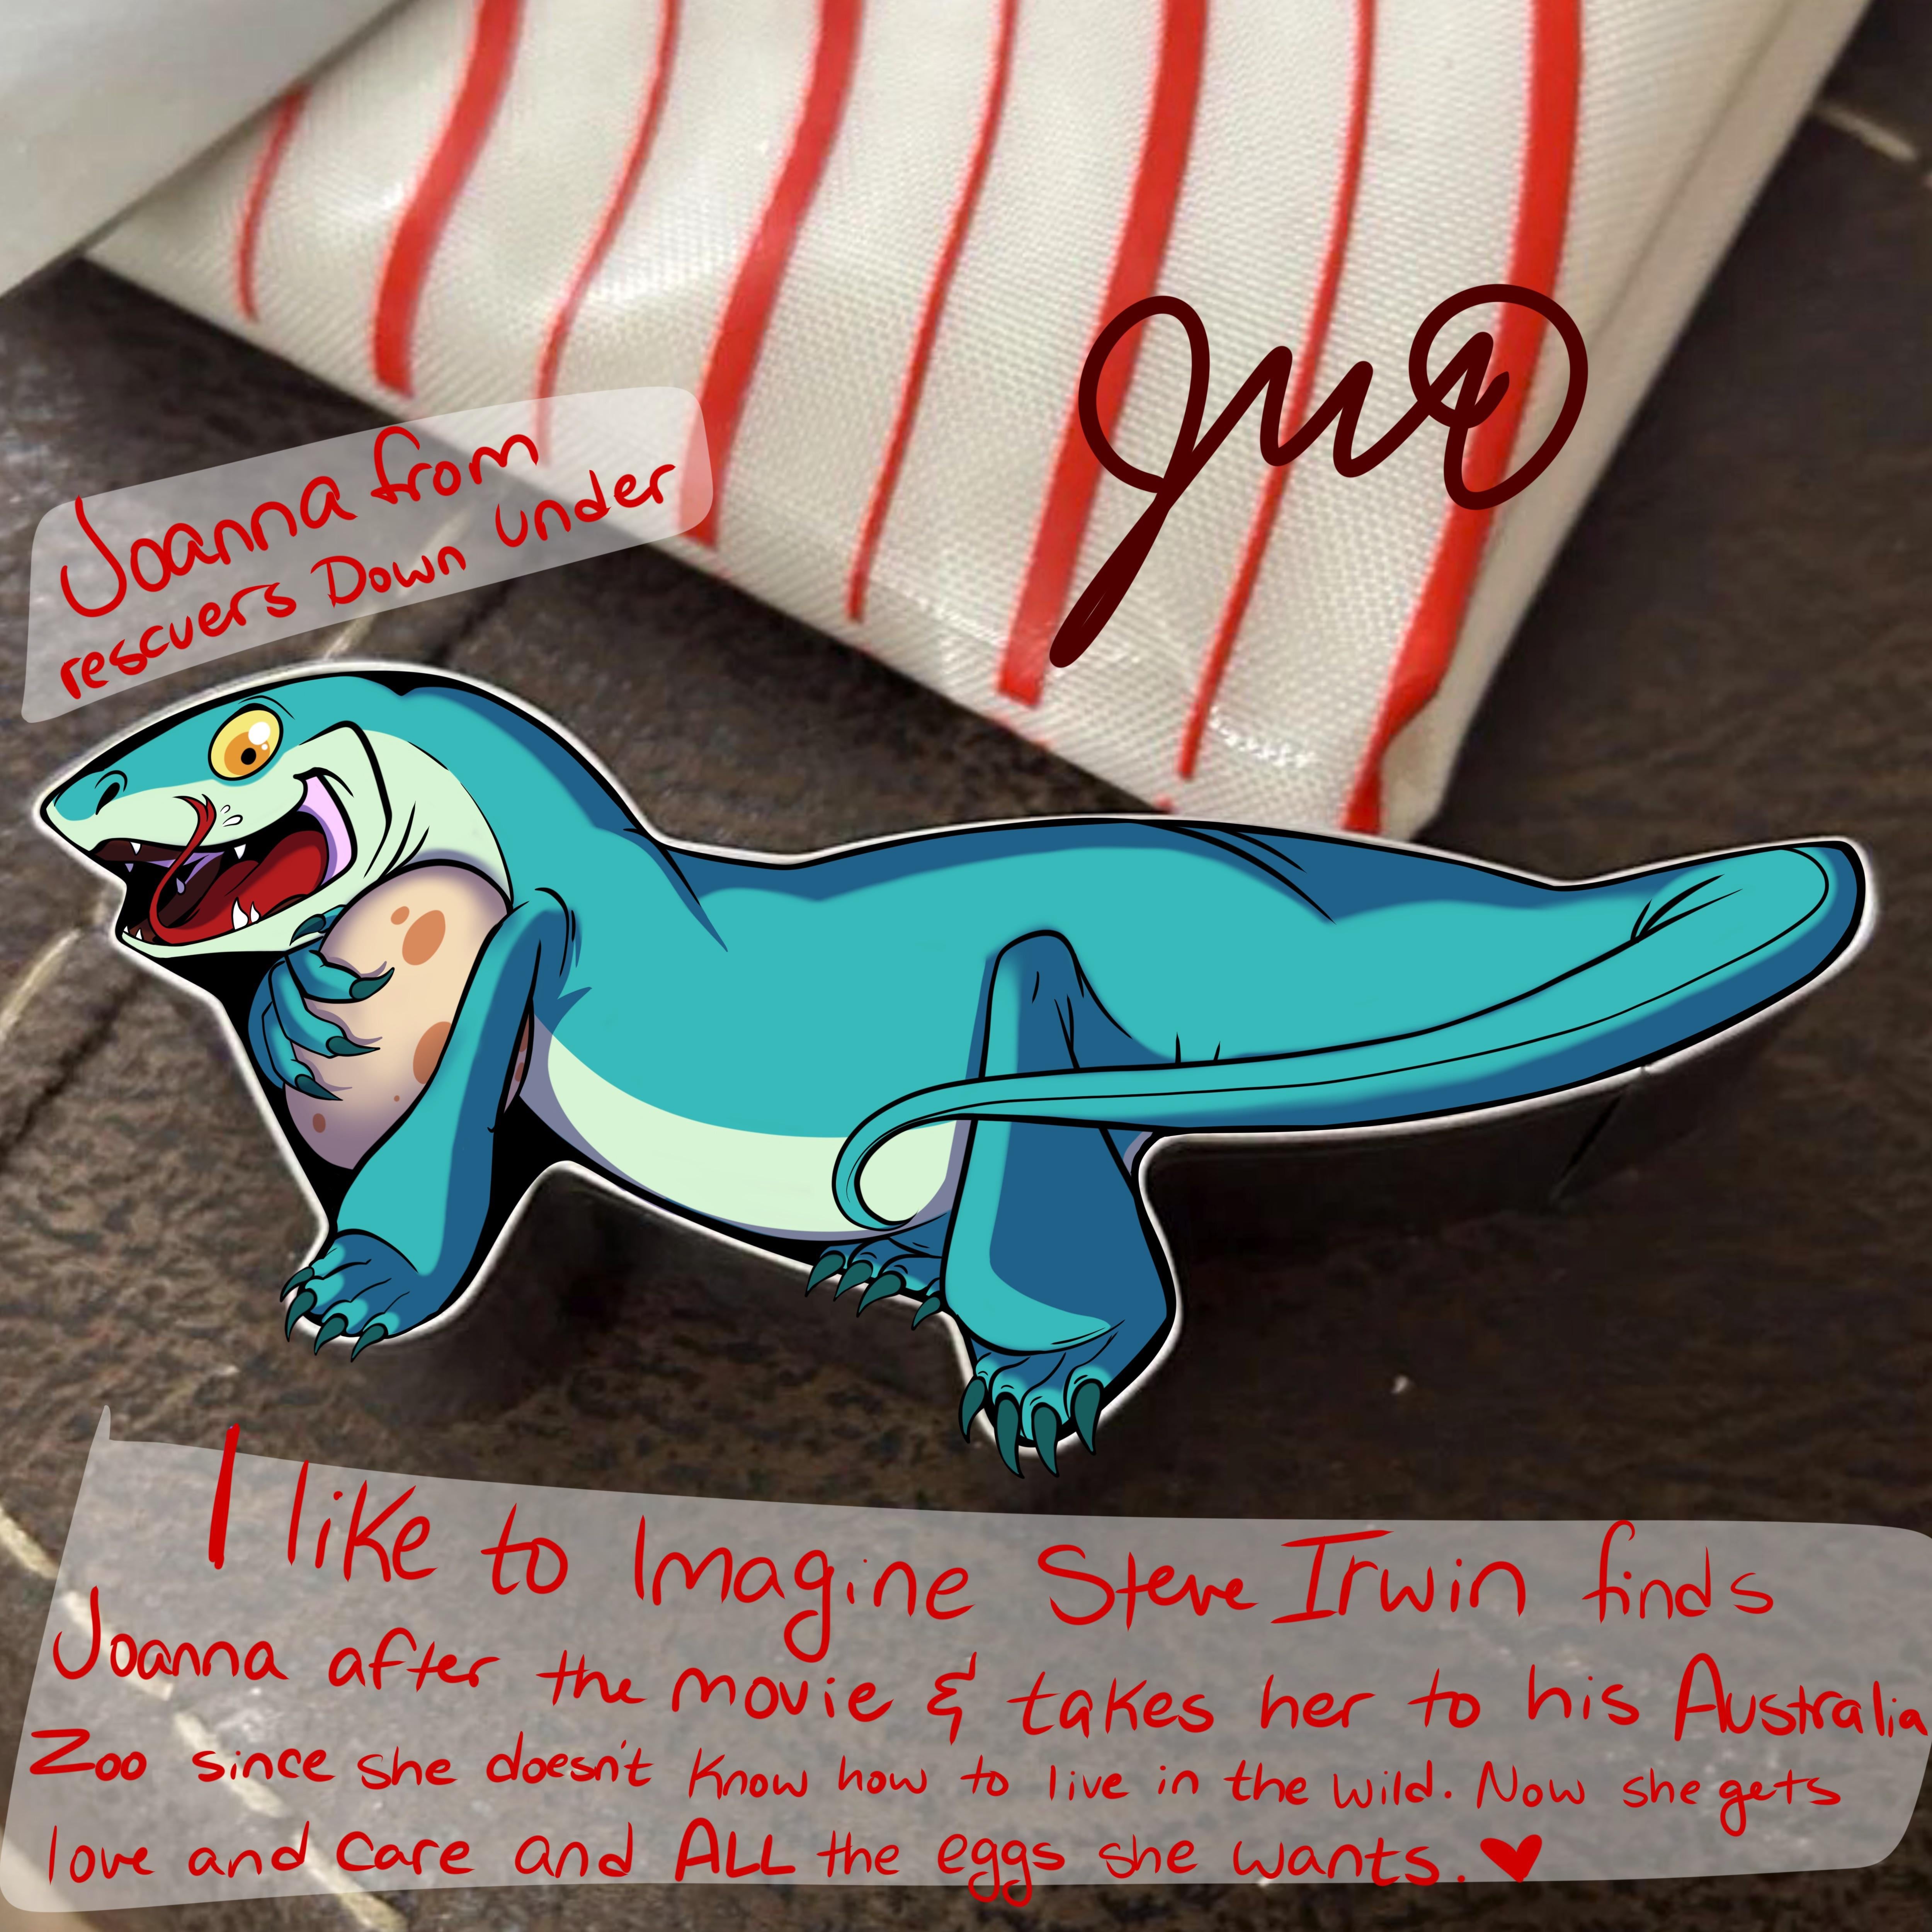 Joanna from
rescuers Down Under
I like to Imagine Steve Irwin finds
Joanna after the movie & takes her to his Australia
Zoo since she doesn't know how to live in the wild. Now she gets
love and care and ALL the eggs she wants. ♥